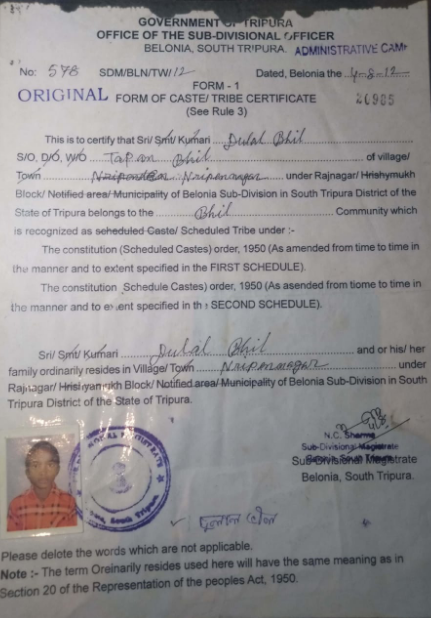 GOVERNMENT OF TRIPURA
OFFICE OF THE SUB-DIVISIONAL OFFICER
BELONIA, SOUTH TRIPURA. ADMINISTRATIVE CAMP
No: 578 SDM/BLN/TW/12 Dated, Belonia the 4-8-12
FORM - 1
ORIGINAL FORM OF CASTE/ TRIBE CERTIFICATE 20985
(See Rule 3)
This is to certify that Sri/ Smt/ Kumari Dulal Bhil
S/O, D/O, W/O Tapan Bhil of village/
Town Naipannagar under Rajnagar/ Hrishymukh
Block/ Notified area/ Municipality of Belonia Sub-Division in South Tripura District of the
State of Tripura belongs to the Bhil Community which
is recognized as scheduled Caste/ Scheduled Tribe under :-
The constitution (Scheduled Castes) order, 1950 (As amended from time to time in
the manner and to extent specified in the FIRST SCHEDULE).
The constitution Schedule Castes) order, 1950 (As amended from tiome to time in
the manner and to extent specified in the SECOND SCHEDULE).
Sri/ Smt/ Kumari Dulal Bhil and or his/ her
family ordinarily resides in Village/ Town Naipannagar under
Rajnagar/ Hrisiyamukh Block/ Notified area/ Municipality of Belonia Sub-Division in South
Tripura District of the State of Tripura.
N.C. Sharma
Sub-Divisional Magistrate
Sub-Divisional Magistrate
Belonia, South Tripura.
South Tripura
দুলাল ভীল
Please delote the words which are not applicable.
Note :- The term Oreinarily resides used here will have the same meaning as in
Section 20 of the Representation of the peoples Act, 1950.